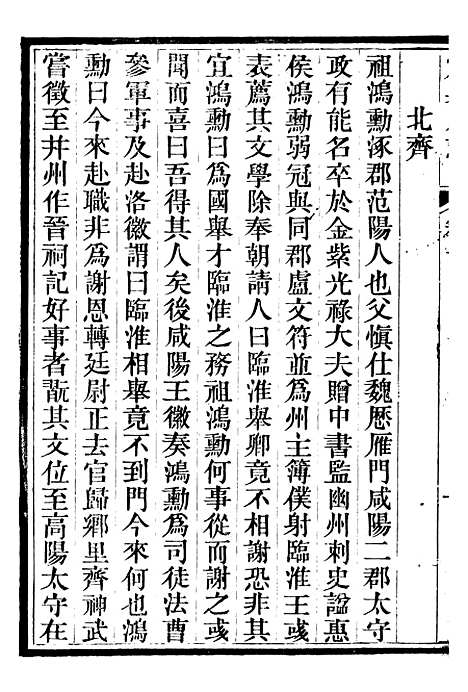 北齊
祖鴻勳涿郡范陽人也父愼仕魏歷雁門咸陽二郡太守
政有能名卒於金紫光祿大夫贈中書監幽州刺史謚惠
侯鴻勳弱冠與同郡盧文符並爲州主簿僕射臨淮王彧
表薦其文學除奉朝請人曰臨淮舉卿竟不相謝恐非其
宜鴻勳曰爲國舉才臨淮之務祖鴻勳何事從而謝之彧
聞而喜曰吾得其人矣後咸陽王徽奏鴻勳爲司徒法曹
參軍事及赴洛徽謂曰臨淮相舉竟不到門今來何也鴻
勳曰今來赴職非爲謝恩轉廷尉正去官歸鄉里齊神武
嘗徵至并州作晉祠記好事者翫其文位至高陽太守在